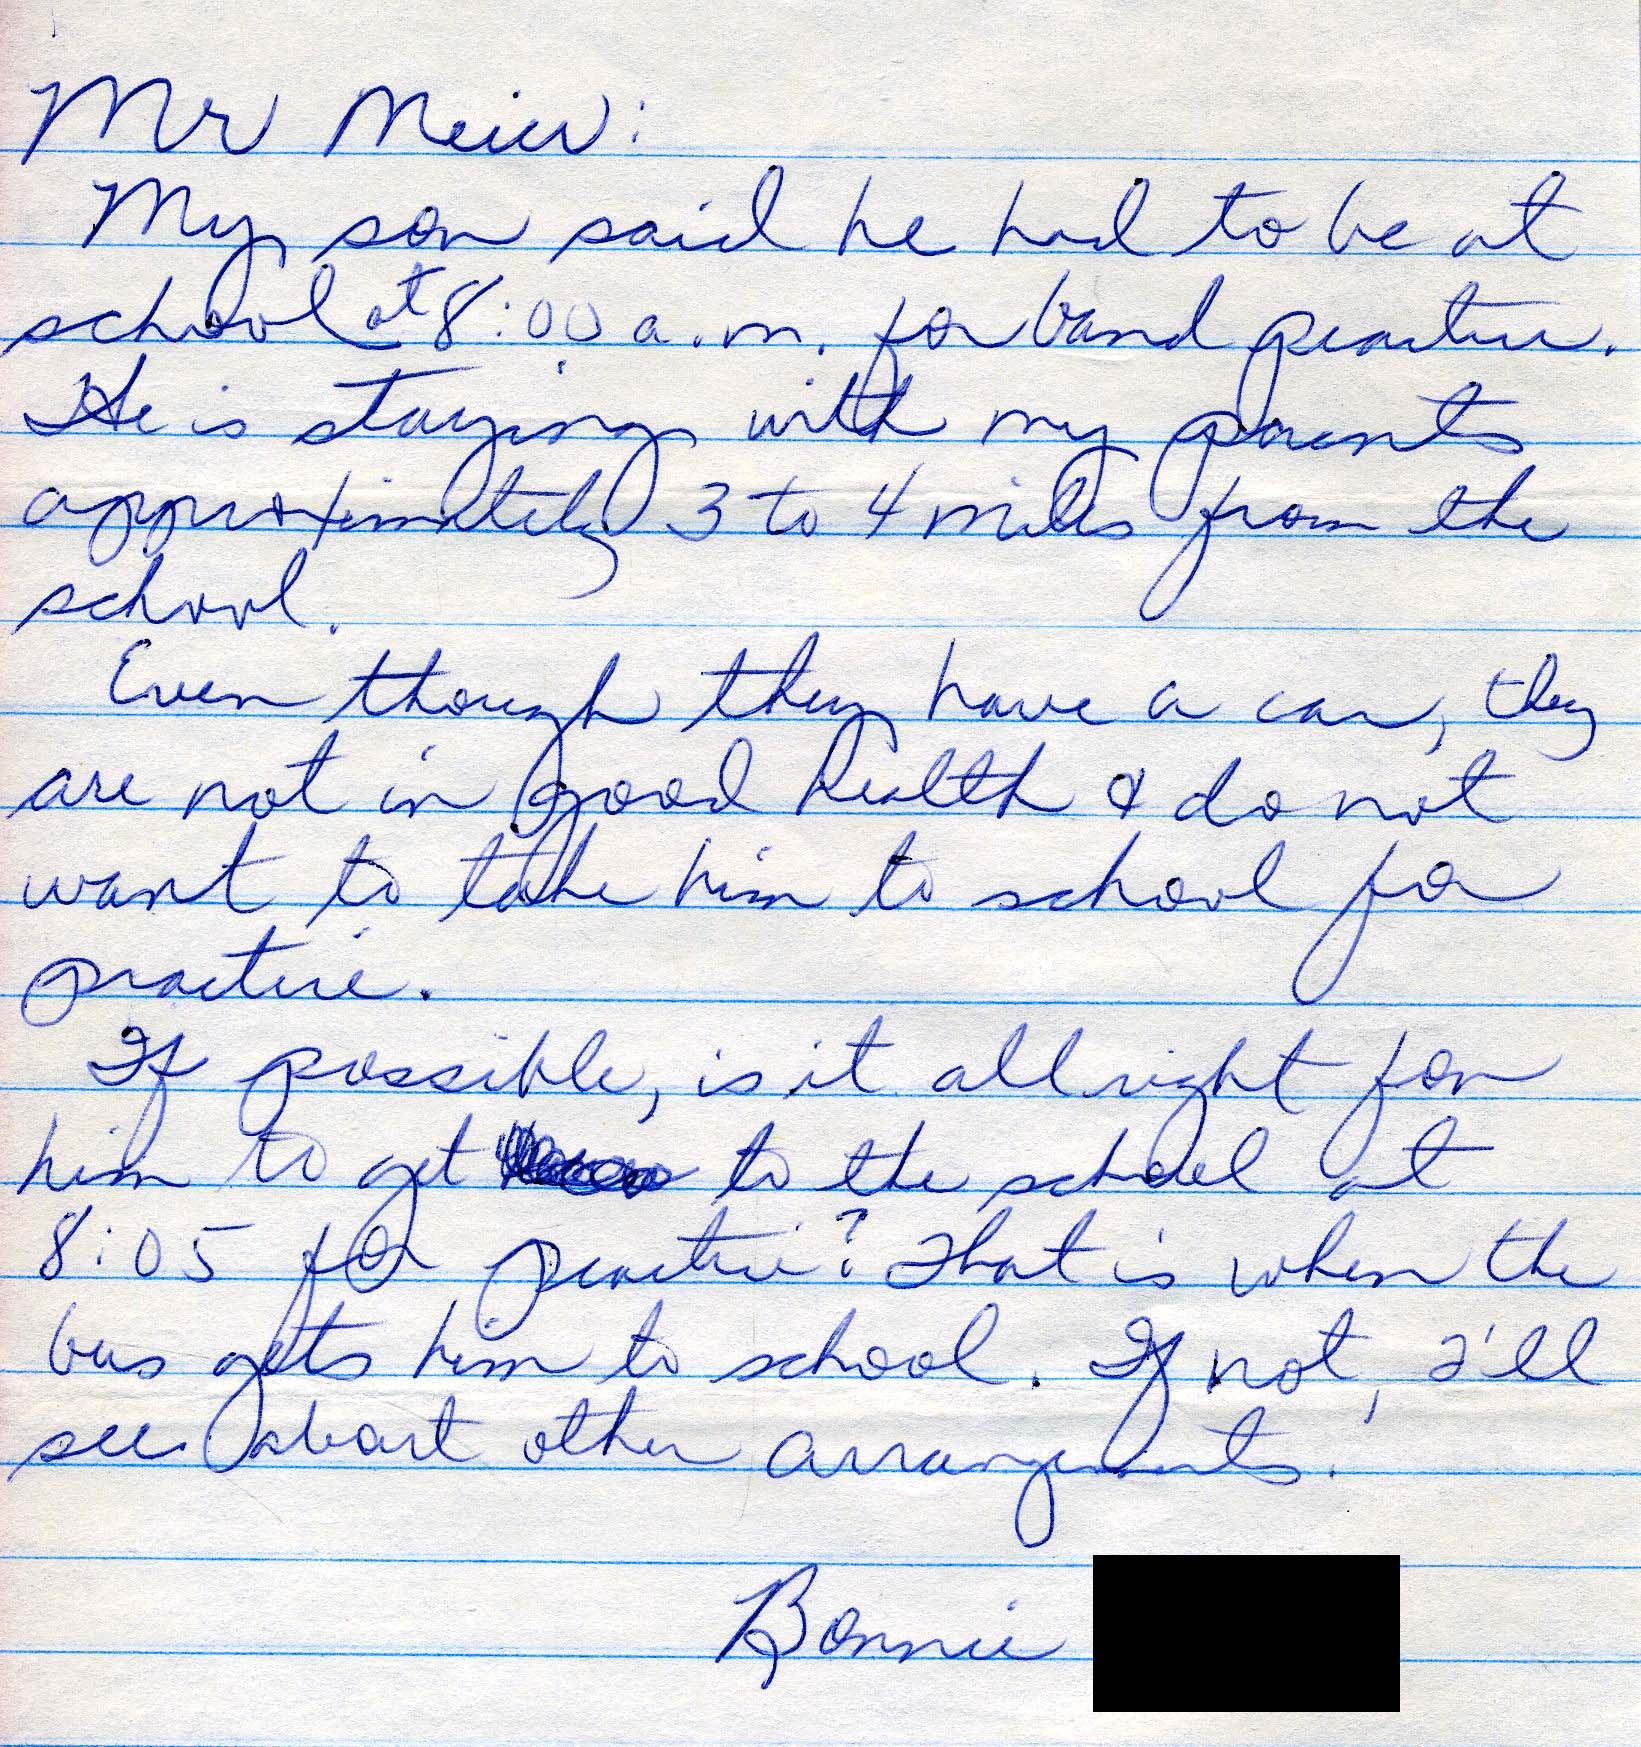 Mr Meier:
My son said he had to be at
school at 8:00 a.m. for band practice.
He is staying with my parents
approximately 3 to 4 miles from the
school.
Even though they have a car, they
are not in good health & do not
want to take him to school for
practice.
If possible, is it all right for
him to get to the school at
8:05 for practice? That is when the
bus gets him to school. If not, I'll
see about other arrangements.
Bonnie